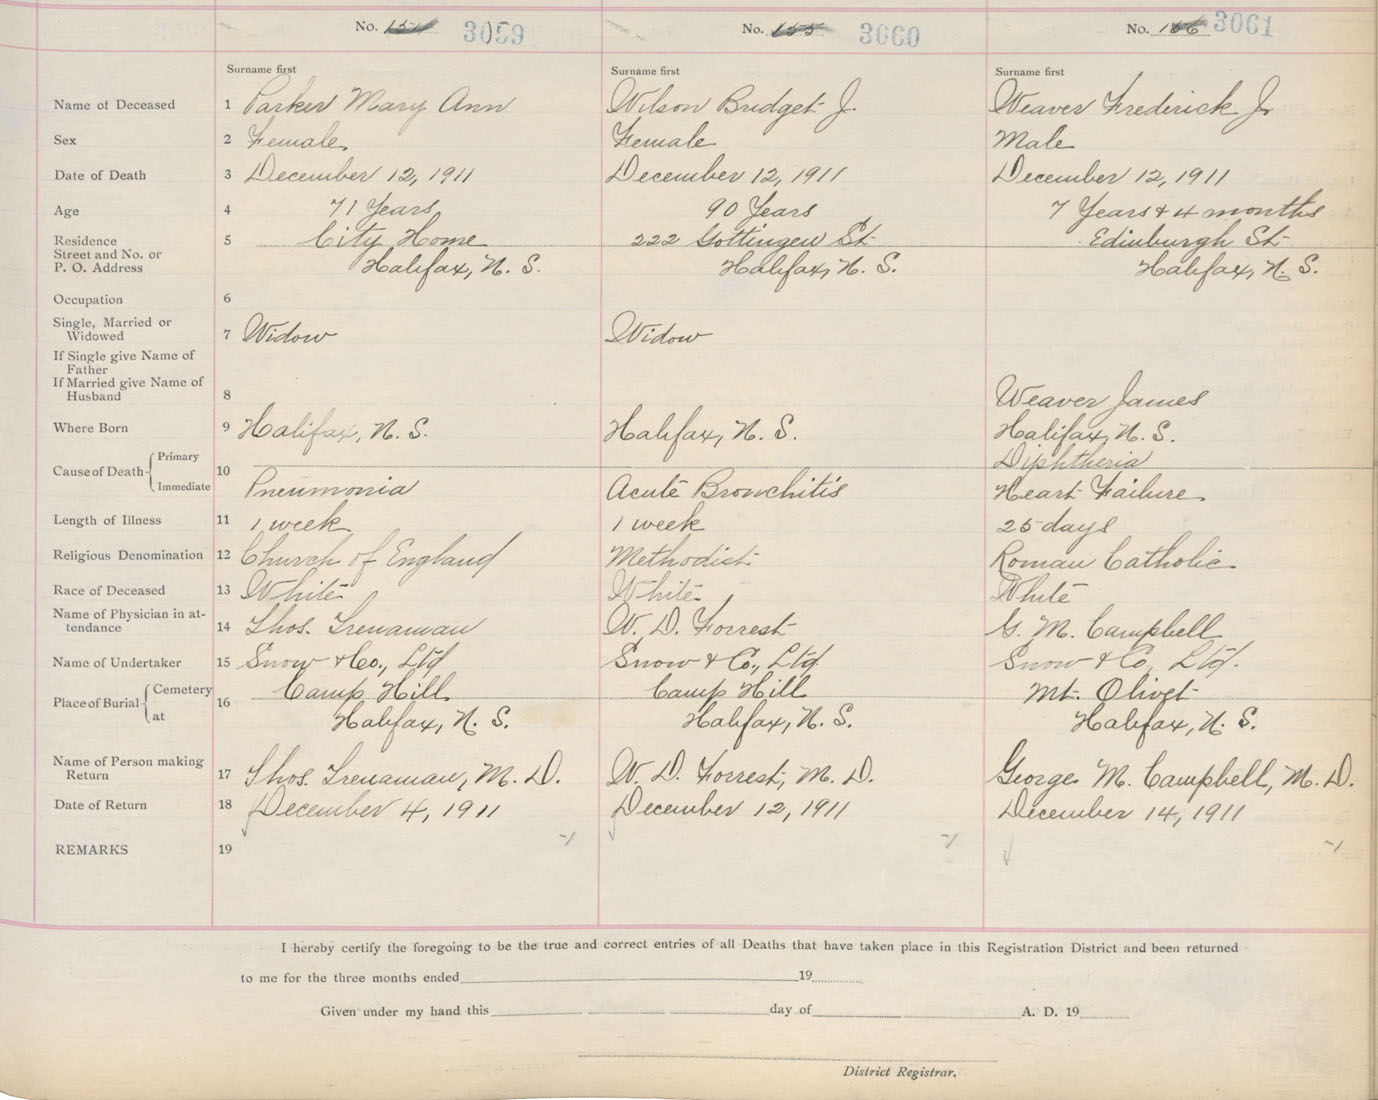 No. 154 3059 No. 155 3060 No. 156 3061
Surname first Surname first Surname first
Name of Deceased 1 Parker Mary Ann Wilson Bridget J. Weaver Frederick J.
Sex 2 Female Female Male
Date of Death 3 December 12, 1911 December 12, 1911 December 12, 1911
Age 4 71 Years 90 Years 7 Years & 4 months
Residence 5 City Home 222 Gottingen St. Edinburgh St.
Street and No. or
P. O. Address Halifax, N. S. Halifax, N. S. Halifax, N. S.
Occupation 6
Single, Married or
Widowed 7 Widow Widow
If Single give Name of
Father
If Married give Name of
Husband 8 Weaver James
Where Born 9 Halifax, N. S. Halifax, N. S. Halifax, N. S.
Primary Diphtheria
Cause of Death 10
Immediate Pneumonia Acute Bronchitis Heart Failure
Length of Illness 11 1 week 1 week 25 days
Religious Denomination 12 Church of England Methodist Roman Catholic
Race of Deceased 13 White White White
Name of Physician in at-
tendance 14 Thos. Trenaman W. D. Forrest G. M. Campbell
Name of Undertaker 15 Snow & Co., Ltd Snow & Co., Ltd. Snow & Co., Ltd.
Cemetery Camp Hill Camp Hill Mt. Olivet
Place of Burial 16
at Halifax, N. S. Halifax, N. S. Halifax, N. S.
Name of Person making
Return 17 Thos. Trenaman, M. D. W. D. Forrest, M. D. George M. Campbell, M. D.
Date of Return 18 December 4, 1911 December 12, 1911 December 14, 1911
REMARKS 19
I hereby certify the foregoing to be the true and correct entries of all Deaths that have taken place in this Registration District and been returned
to me for the three months ended 19
Given under my hand this day of A. D. 19
District Registrar.